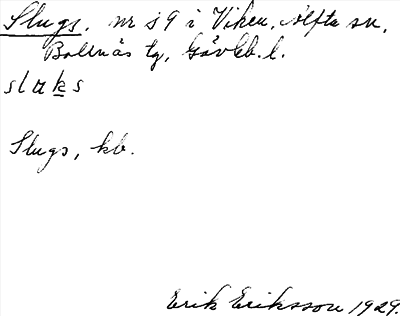 Slugs, nr 59 i Viken, Alfta sn,
Bollnäs tg, Gävleb. l.
slɑks
Slugs, kb.
Erik Eriksson 1929.